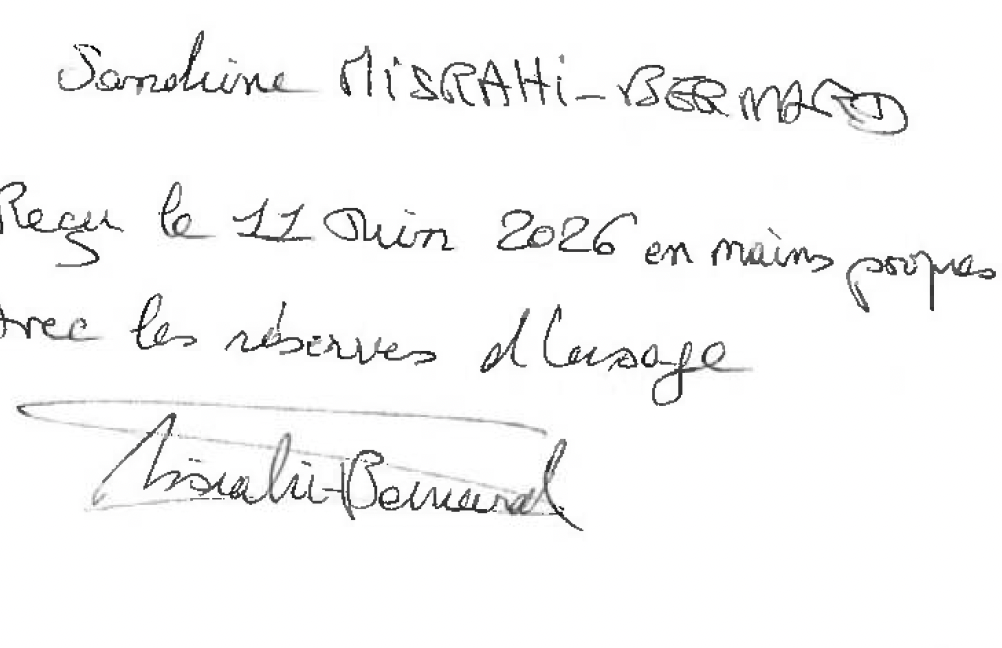 Sandrine MISRAHi-BERNARD
Reçu le 11 Juin 2026 en mains propres
Avec les réserves d'usage
Misrahi-Bernard